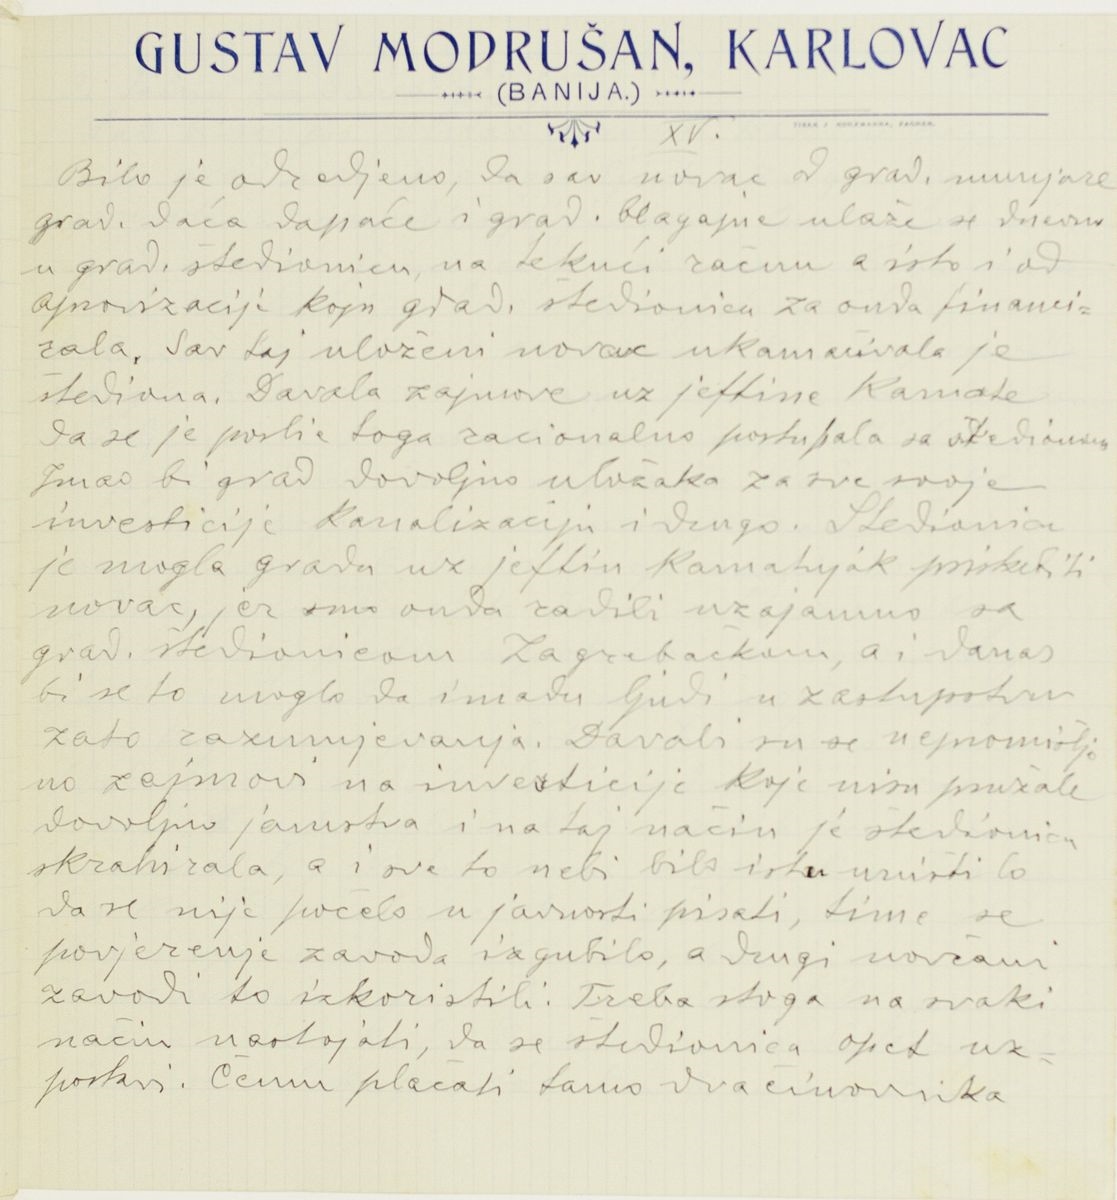 GUSTAV MODRUŠAN, KARLOVAC
(BANIJA.)
XV.
Bilo je odredjeno, da sav novac od grad. munjare
grad. daća dapače i grad. blagajne ulaže se dnevno
u grad. štedionicu, na tekući račun a isto i od
aprovizacije koju grad. štedionica za onda financi=
rala. Sav taj uloženi novac ukamaćivala je
štediona. Davala zajmove uz jeftine kamate
da se je poslie toga racionalno postupala sa štedionicom
Imao bi grad dovoljno uložaka za sve svoje
investicije kanalizaciju i drugo. Štedionica
je mogla gradu uz jeftin kamatnjak priskrbiti
novac, jer smo onda radili uzajamno sa
grad. štedionicom Zagrebačkom, a i danas
bi se to moglo da imadu ljudi u zastupstvu
zato razumjevanja. Davali su se nepromišlje
no zajmovi na investicije koje nisu pružale
dovoljno jamstva i na taj način je štedionica
skrahirala, a i sve to nebi bilo istu uništilo
da se nije počelo u javnosti pisati, time se
povjerenje zavoda izgubilo, a drugi novčani
zavodi to izkoristili. Treba stoga na svaki
način nastojati, da se štedionica opet uz=
postavi. Čemu plaćati tamo dva činovnika